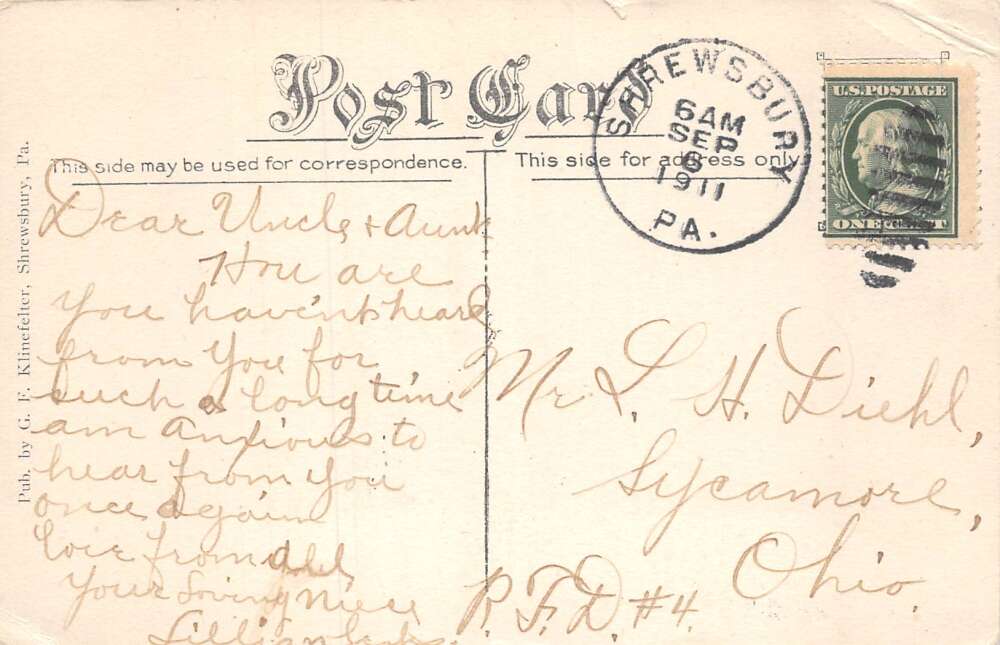 Post Card
This side may be used for correspondence.
This side for address only.
SHREWSBURY
6 AM
SEP
6
1911
PA.
U.S. POSTAGE
ONE CENT
Pub. by G. F. Klinefelter, Shrewsbury, Pa.
Dear Uncle & Aunt
How are
you havent heard
from you for
such a long time
am anxious to
hear from you
once again
love from all
Your Loving Niece
Lillian
Mr. L. H. Diehl,
Sycamore,
Ohio.
R. F. D. #4.